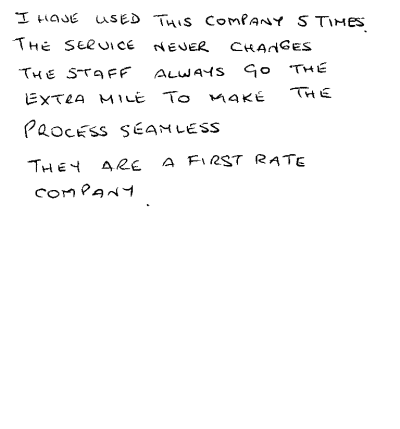 I HAVE USED THIS COMPANY 5 TIMES.
THE SERVICE NEVER CHANGES
THE STAFF ALWAYS GO THE
EXTRA MILE TO MAKE THE
PROCESS SEAMLESS
THEY ARE A FIRST RATE
COMPANY.